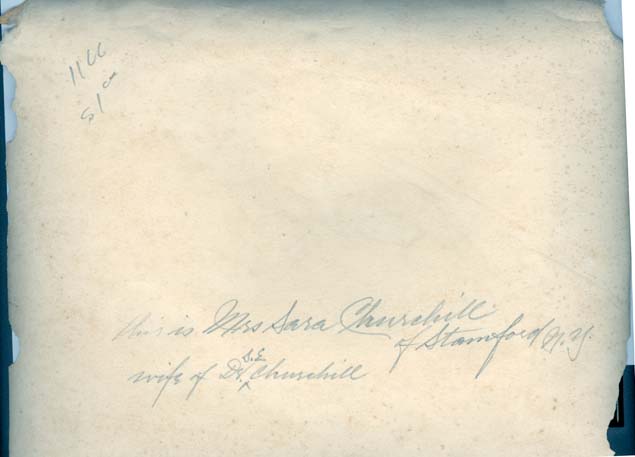 1166
this is Mrs Sara Churchill
of Stamford N.Y.
wife of Dr. S.E. Churchill